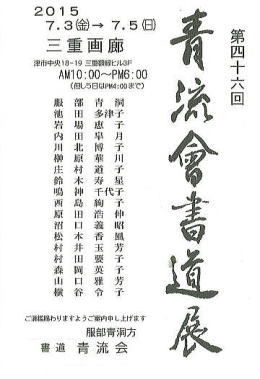 第四十六回
青流會書道展
2015
7.3(金)→7.5(日)
三重画廊
津市中央18-19 三重額縁ビル3F
AM10:00~PM6:00
(但し5日はPM4:00まで)
服部青洞
池田多津子
岩場恵子
内田皐月
川北博子
榊原華川
庄村道子
鈴木寿星
鳴神千代子
西島絢子
原田浩伸
沼口義昭
松本香風
村井玉芳
村田要子
森岡英子
山口雅芳
横谷令子
ご清鑑賜わりますようご案内申し上げます
服部青洞方
書道 青流会